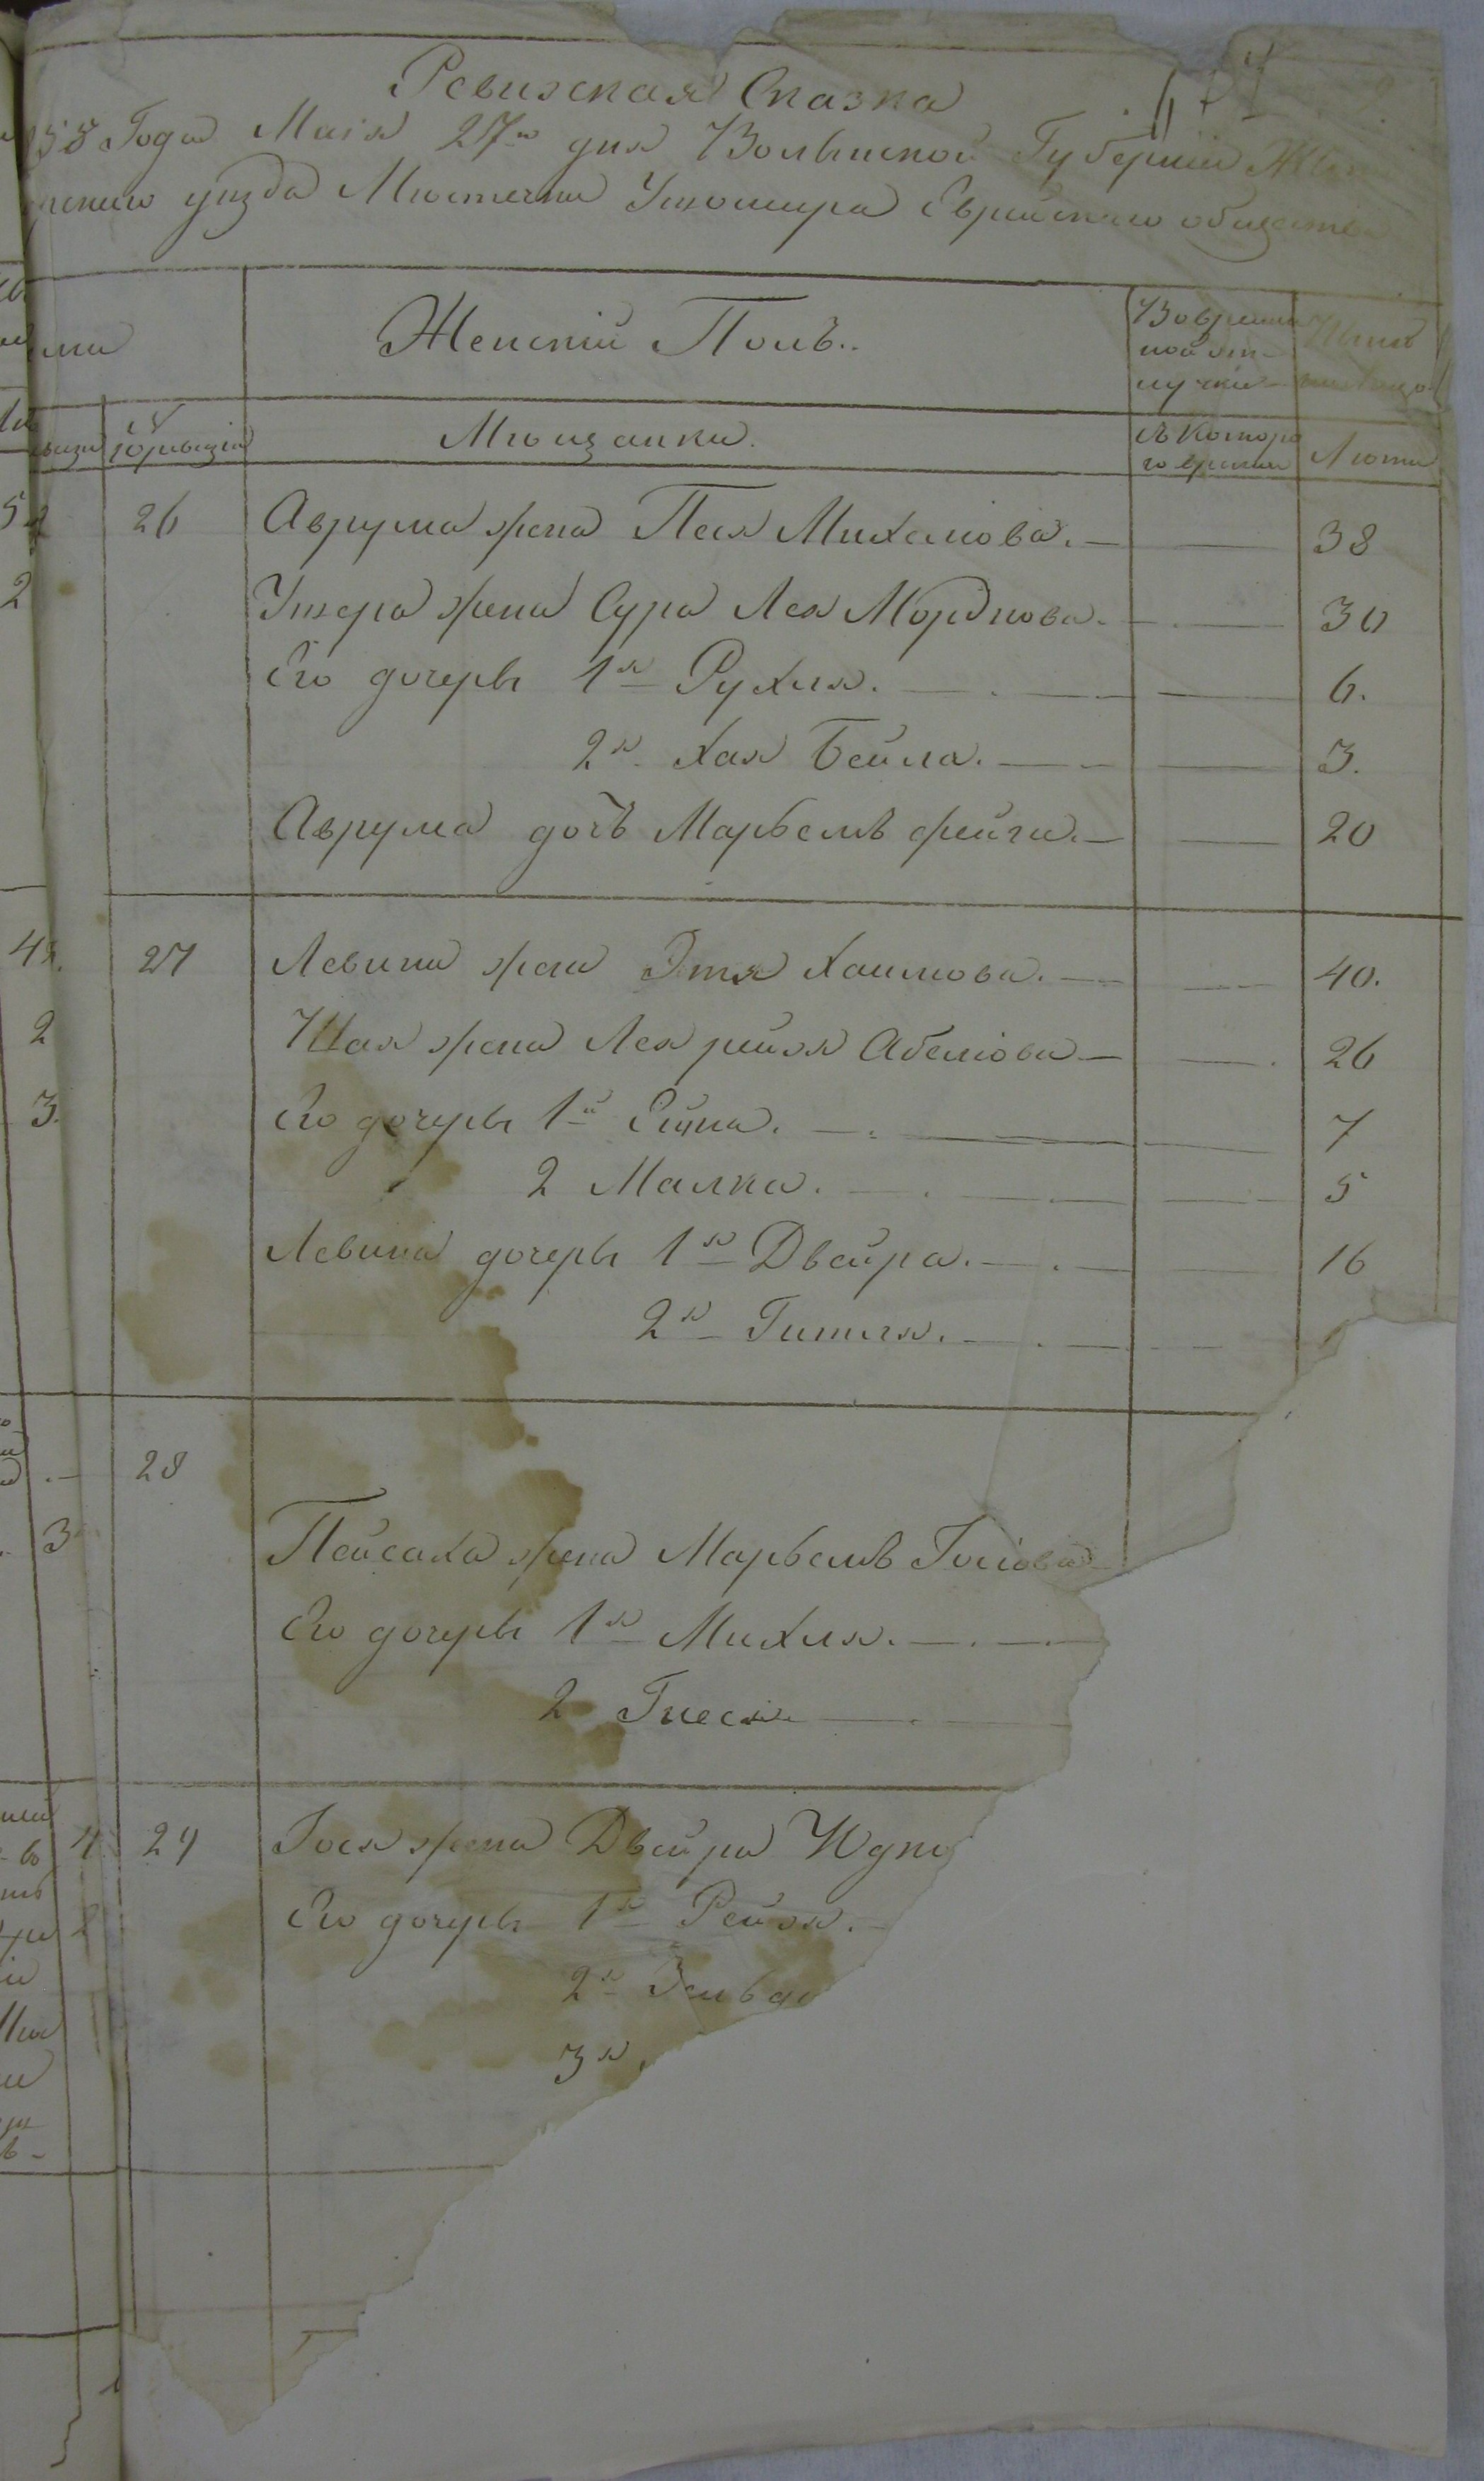 Ревизская Сказка
58 Года Маія 27го дня Волынской Губерніи Жи
рскаго уезда Местечка Ушомира Еврейскаго общества
Женскій Полъ..
Во времен
ной от-
лучке
Ныне
Мещанки.
Съ которо
го времени
Лета
26 Аврума жена Песя Михелiова. — 38
Ушера жена Сура Лея Мордкова. — 30
Его дочеры 1я Рухля. — 6.
2я Хая Бейла. — 3.
Аврума дочь Марьемъ фейга. — 20
27 Левика жена Этя Хаимова. — 40.
Шая жена Лея рейзя Абелiова — 26
Его дочеры 1я — 7
2 Малка. — 5
Левика дочеры 1я Двейра. — 16
2я Гитля. —
28
Пейсаха жена Марьемъ
Его дочеры 1я Михля. —
2 Гнеся —
29 Iося жена Двейра Юдко
Его дочеры 1я Рейзя. —
2я
3я